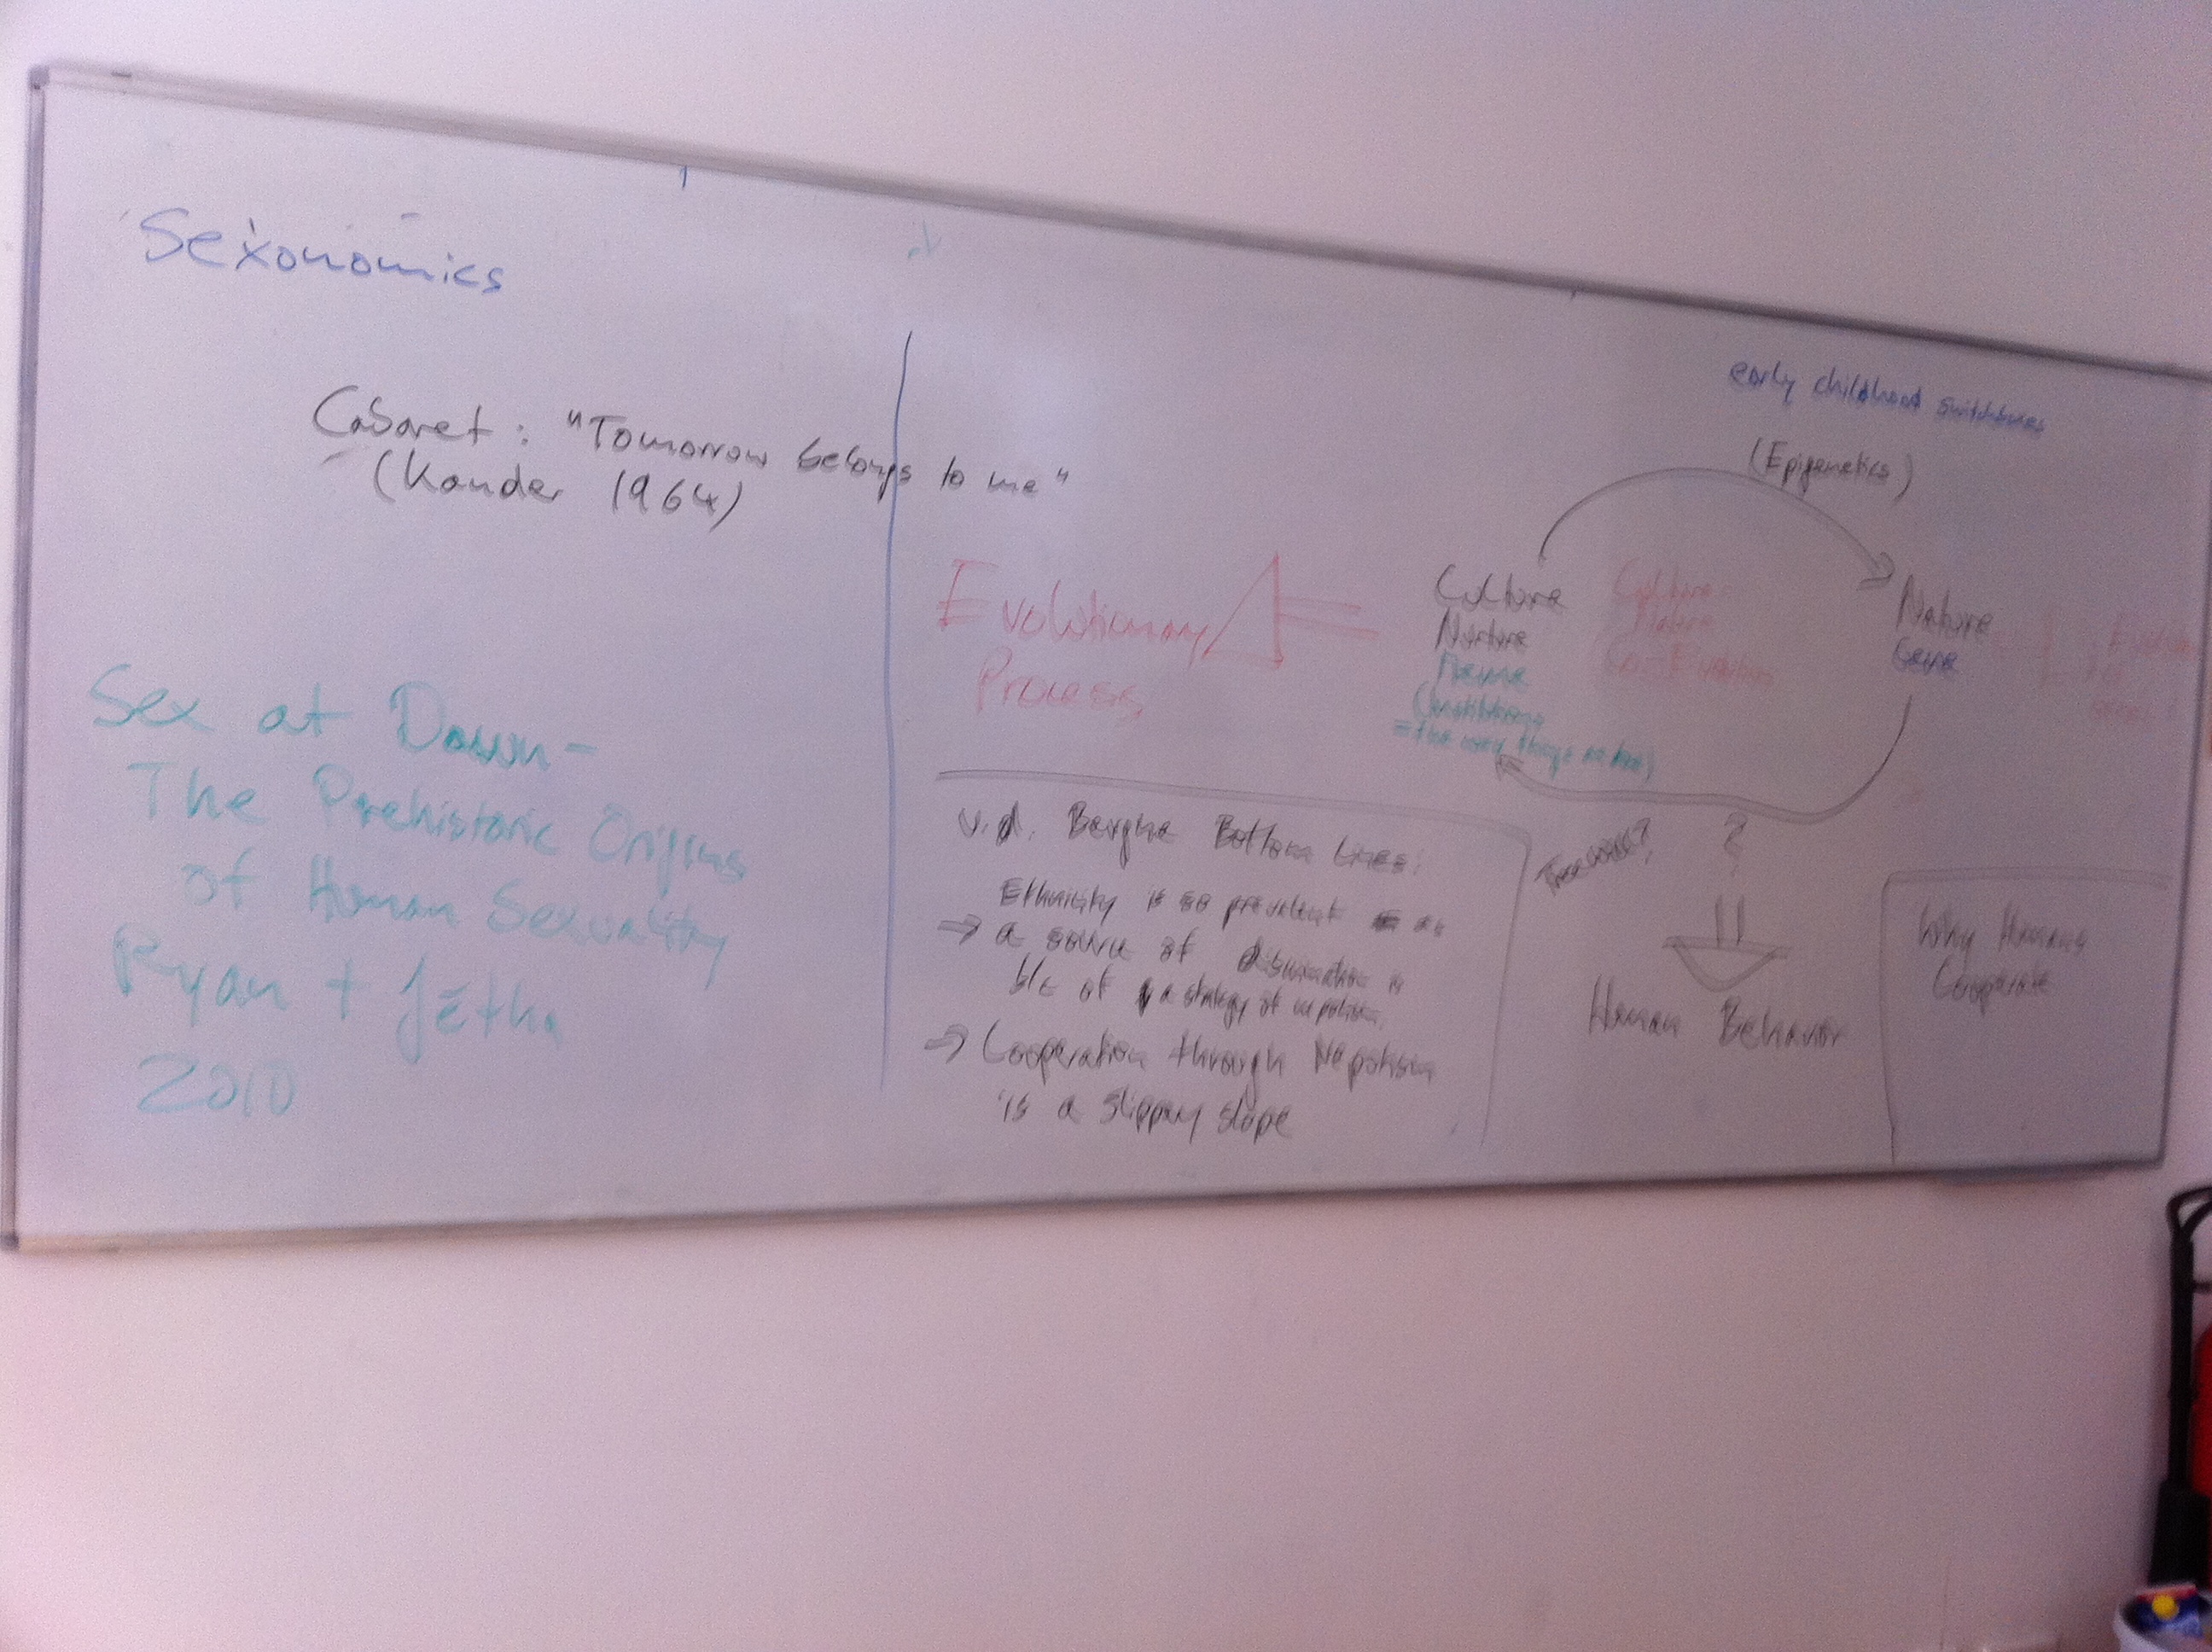 Sexonomics
Cabaret: "Tomorrow belongs to me"
(Kander 1964)
Sex at Dawn -
The Prehistoric Origins
of Human Sexuality
Ryan + Jethá
2010
Evolutionary
Process
early childhood
(Epigenetics)
Culture
Nurture
Meme
(institutions
= the way things are done)
Culture
Nature
Co-Evolution
Nature
Gene
v.d. Berghe Bottom Lines:
Ethnicity is so prevalent as
→ a source of discrimination is
b/c of a strategy of nepotism.
→ Cooperation through Nepotism
is a slippery slope
?
Human Behavior
Why Humans
Cooperate